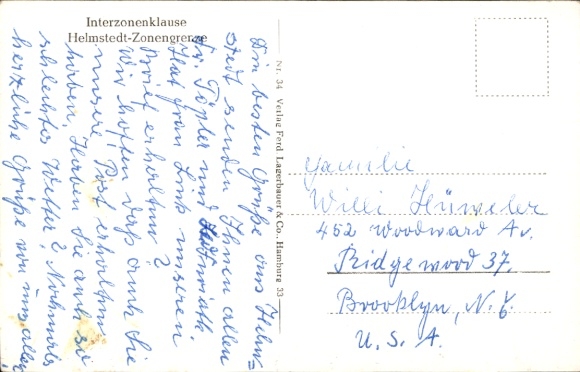 Interzonenklause
Helmstedt-Zonengrenze
Die besten Grüße aus Helm=
stedt senden Ihnen allen
Fr. Töpler und
Hat Frau Link unseren
Brief erhalten?
Wir hoffen das auch Sie
unsere Post erhalten
haben. Haben Sie auch so
schlechtes Wetter? Nochmals
herzliche Grüße von uns allen
Nr. 34 Verlag Ferd. Lagerbauer & Co., Hamburg 33
Familie
Willi Hüweler
452 Woodward Av.
Ridgewood 37.
Brooklyn, N.Y.
U. S. A.